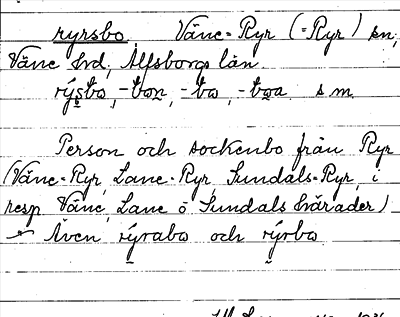 ryrsbo, Väne-Ryr (=Ryr) sn,
Väne hrd, Älfsborgs län
rýsbo, -bon, -ba, -boa s m.
Person och sockenbo från Ryr
(Väne-Ryr, Lane-Ryr, Sundals-Ryr, i
resp Väne, Lane o Sundals härader)
Även rýrabo och rýrbo